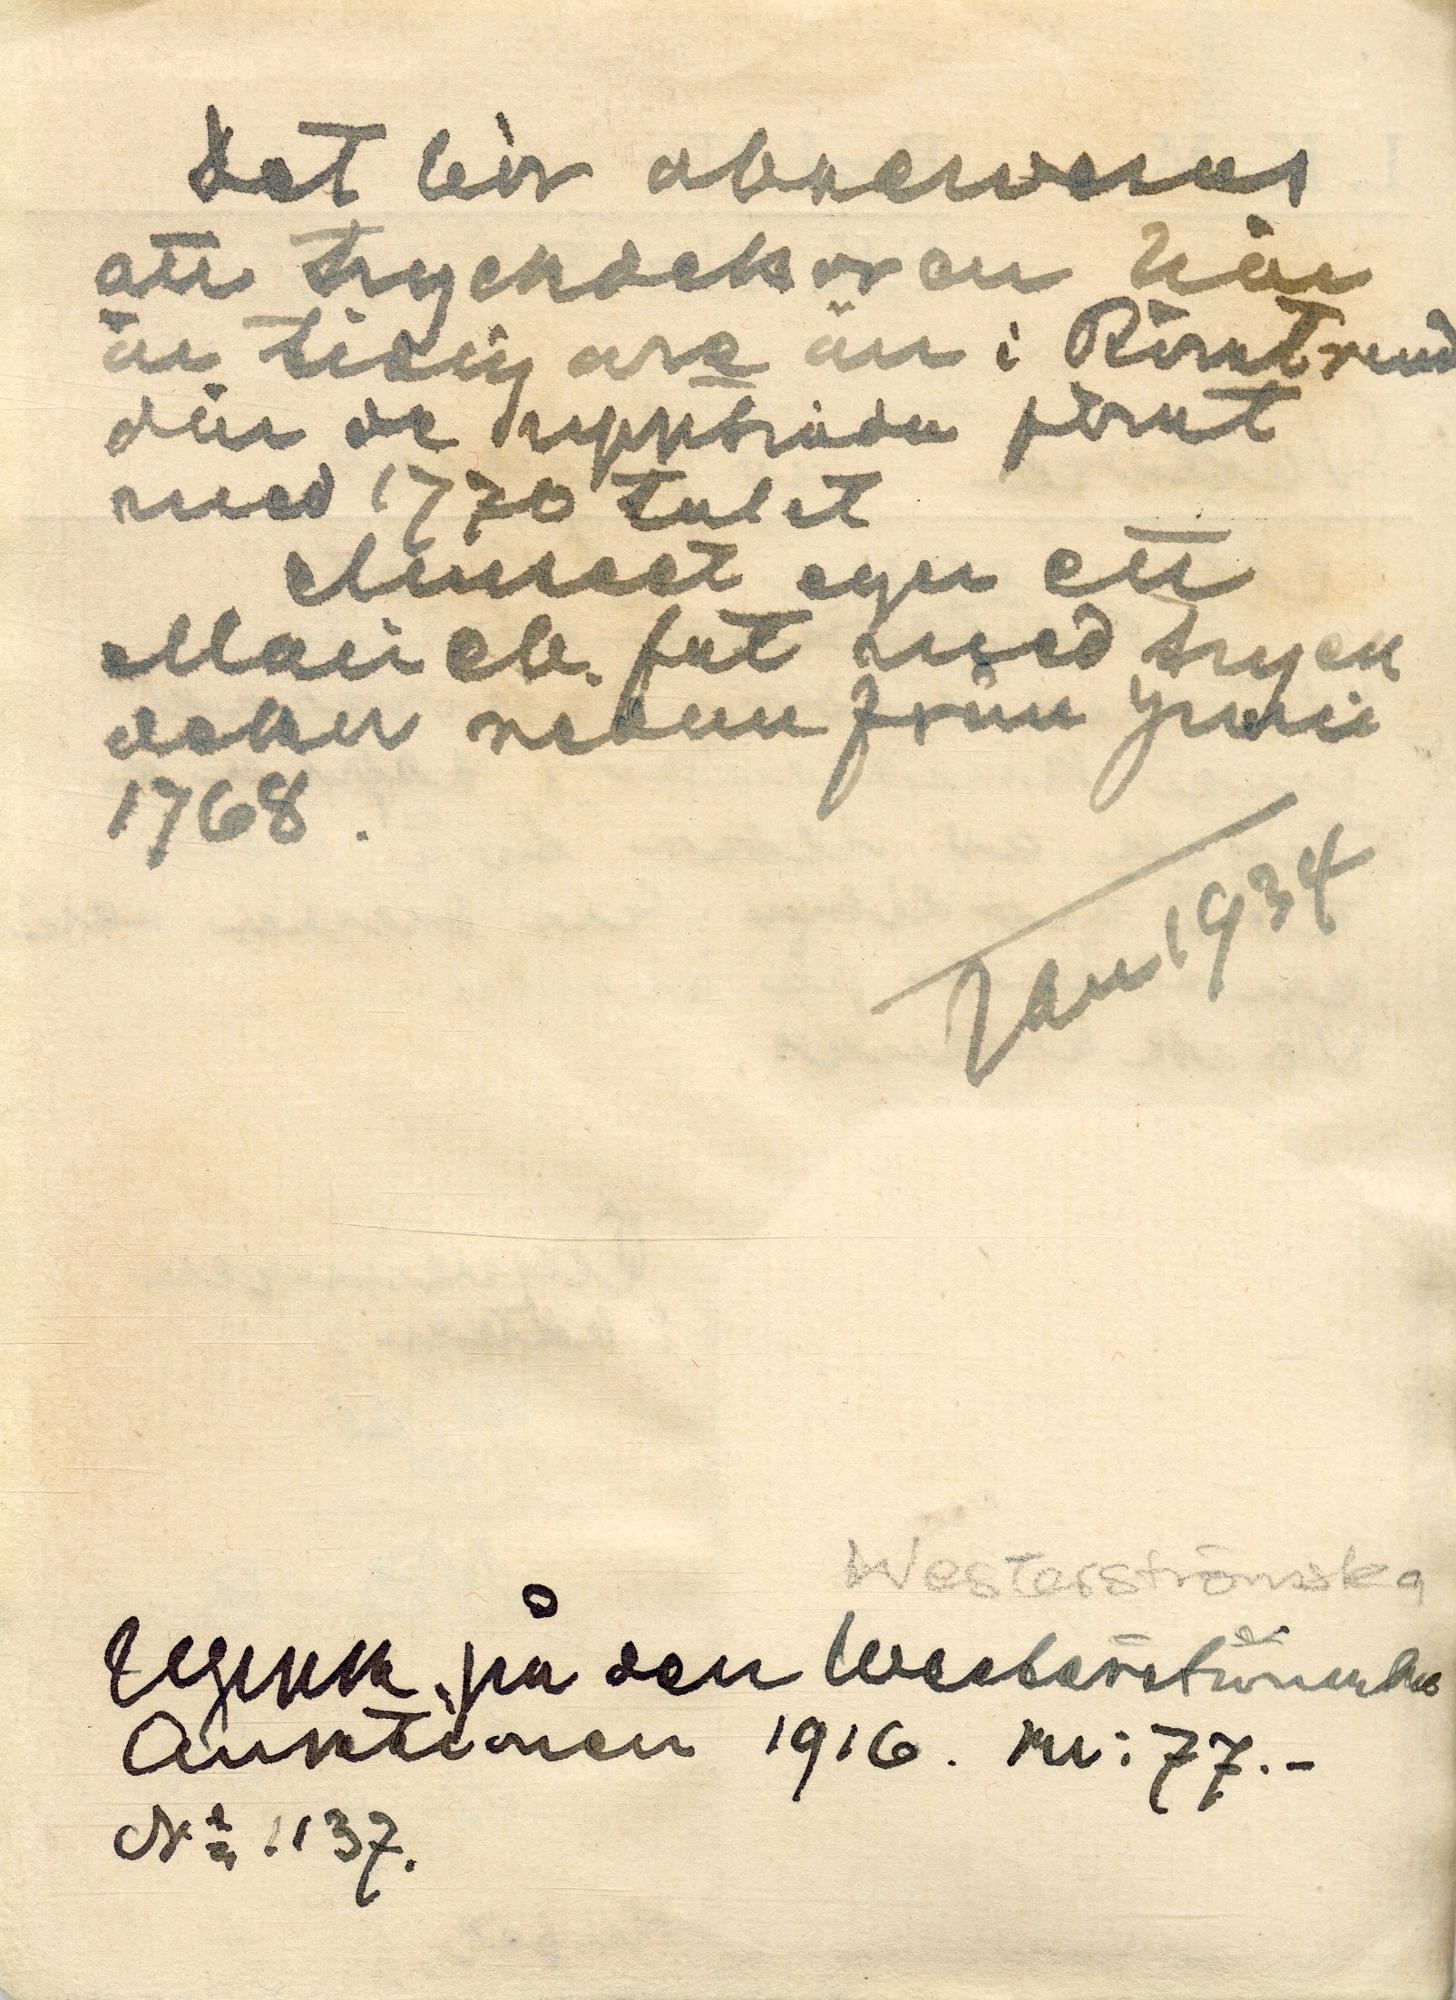 Det bör observeras
att tryckdekoren här
är tidigare än i Rörstrand
där de uppträda först
med 1770 talet
Museet eger ett
Marieb. fat med tryck
dekor redan från Juni
1768.
Jan 1934
Westerströmska
Utgick på den Westerströmska
Auktionen 1916. Kr: 77.-
No 1137.